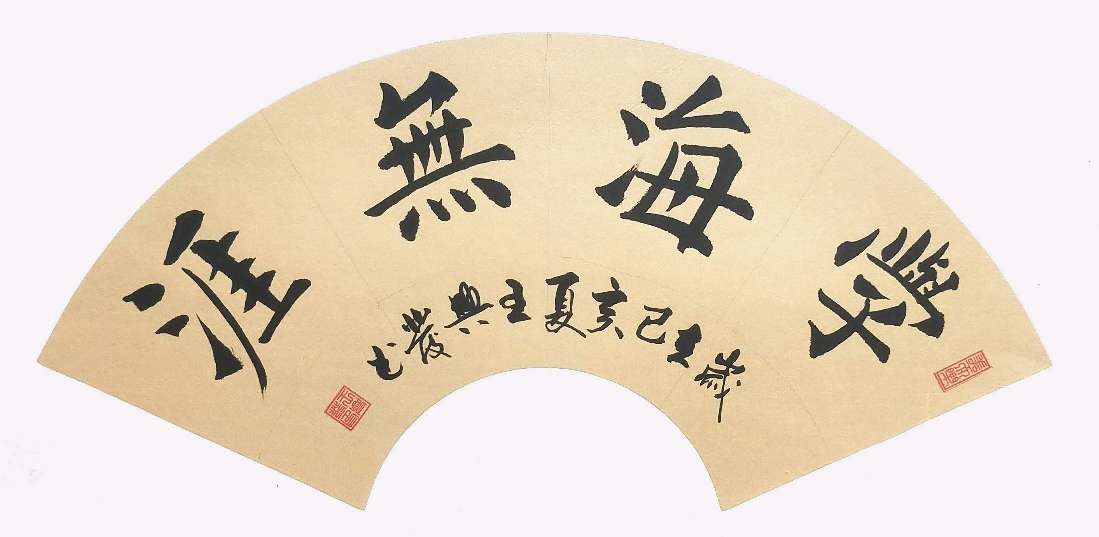 學海無涯
歲在己亥夏王興發書